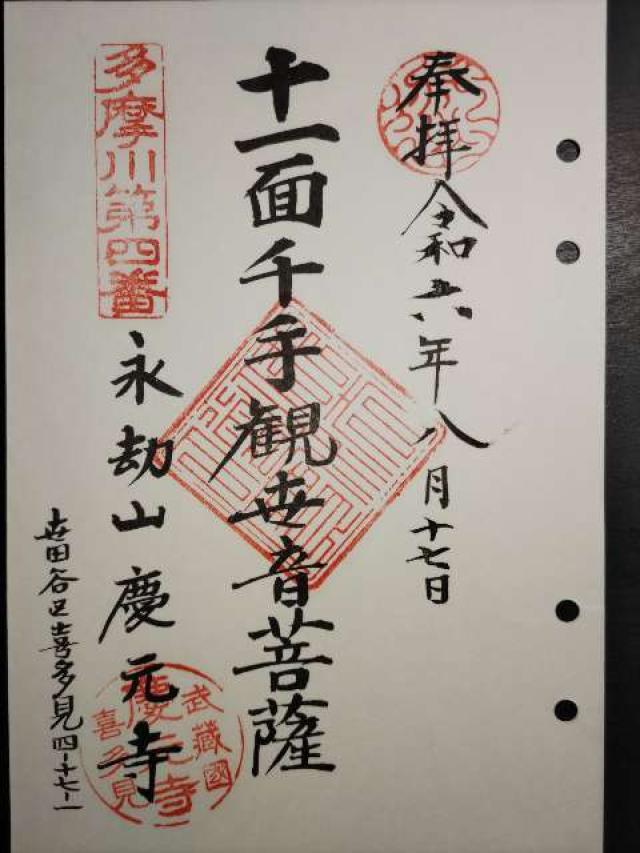 奉拝 令和六年八月十七日
十一面千手観世音菩薩
多摩川第四番
永劫山慶元寺
武藏國
喜多見
慶元寺
世田谷区喜多見四-十七-一